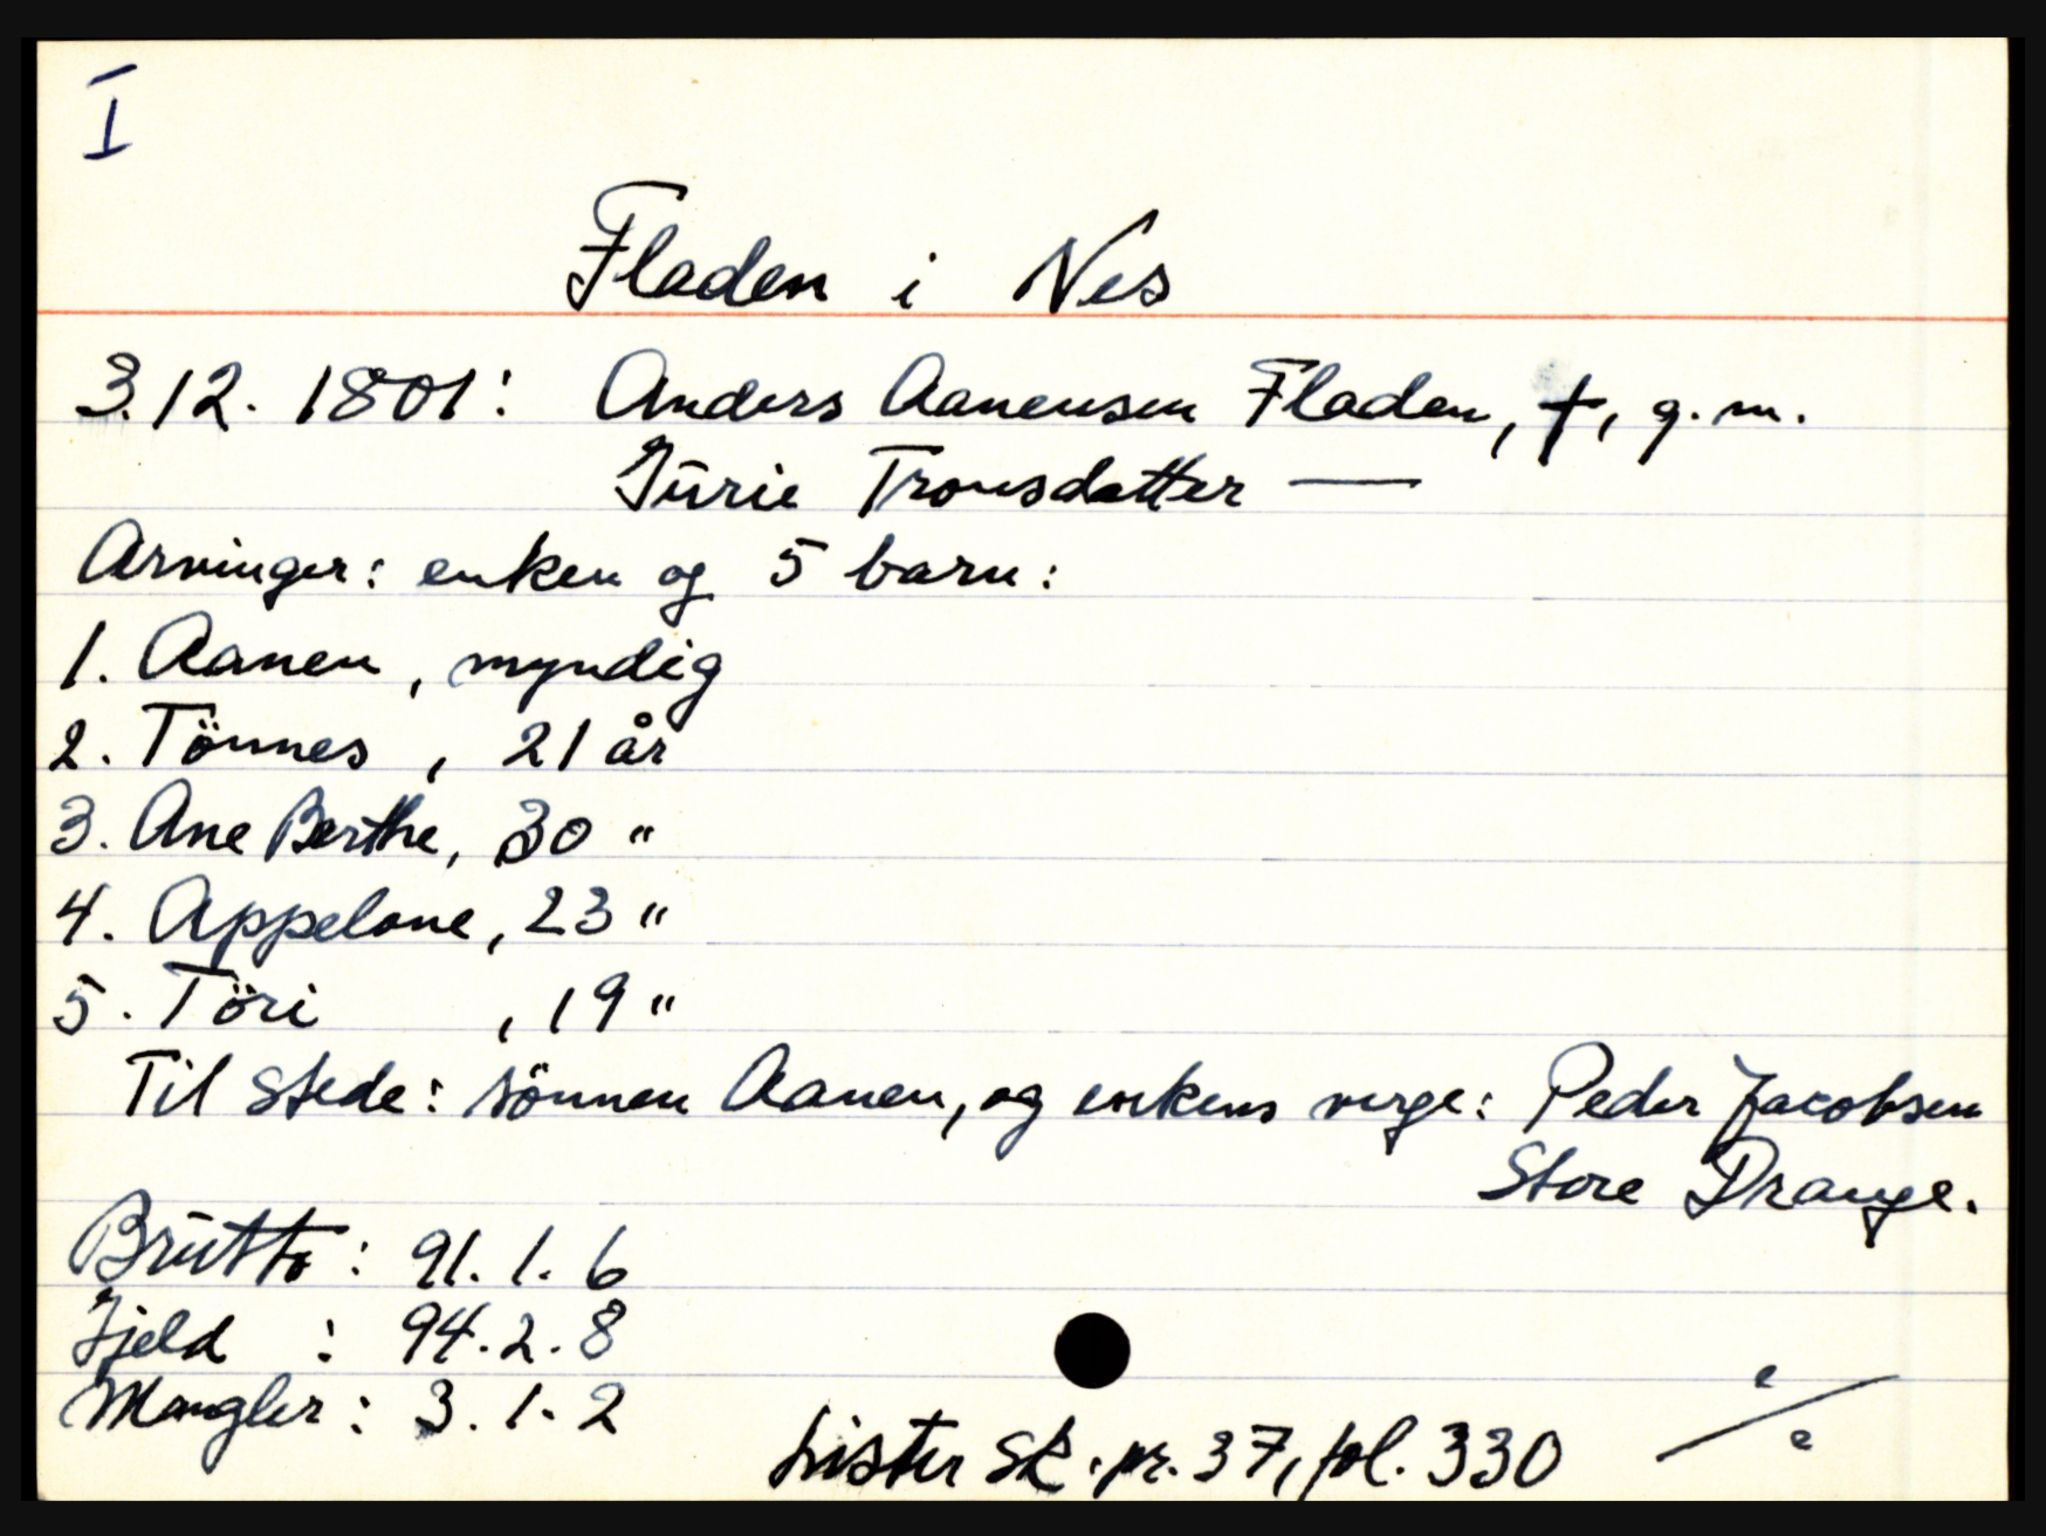 I
Fladen i Nes
3.12. 1801: Anders Aanensen Fladen, †, g.m.
Jūrie Tronsdatter —
Arvinger: enken og 5 barn:
1. Aanen, myndig
2. Tönnes, 21 år
3. Ane Berthe, 30 "
4. Appelone, 23 "
5. Töri, 19 "
Til stede: sönnen Aanen, og enkens verge: Peder Jacobsen
Store Drange.
Brūtto: 91. 1. 6
Gjeld : 94. 2. 8
Mangler: 3. 1. 2
Lister sk.pr. 37, fol. 330
e/e